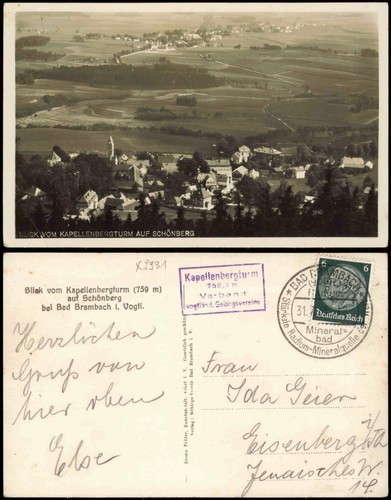 BLICK VOM KAPELLENBERGTURM AUF SCHÖNBERG
X9931
Blick vom Kapellenbergturm (759 m)
auf Schönberg
bei Bad Brambach i. Vogtl.
Kapellenbergturm
759 m
Verband
vogtländ. Gebirgsvereine
BAD BRAMBACH
31.
Mineral-
bad
Stärkste Radium-Mineralquelle
6 6
Deutsches Reich
Herzlichen
Gruß von
hier oben
Else
Frau
Ida Geier
Eisenberg i/Th
Jenaisches W.
14.